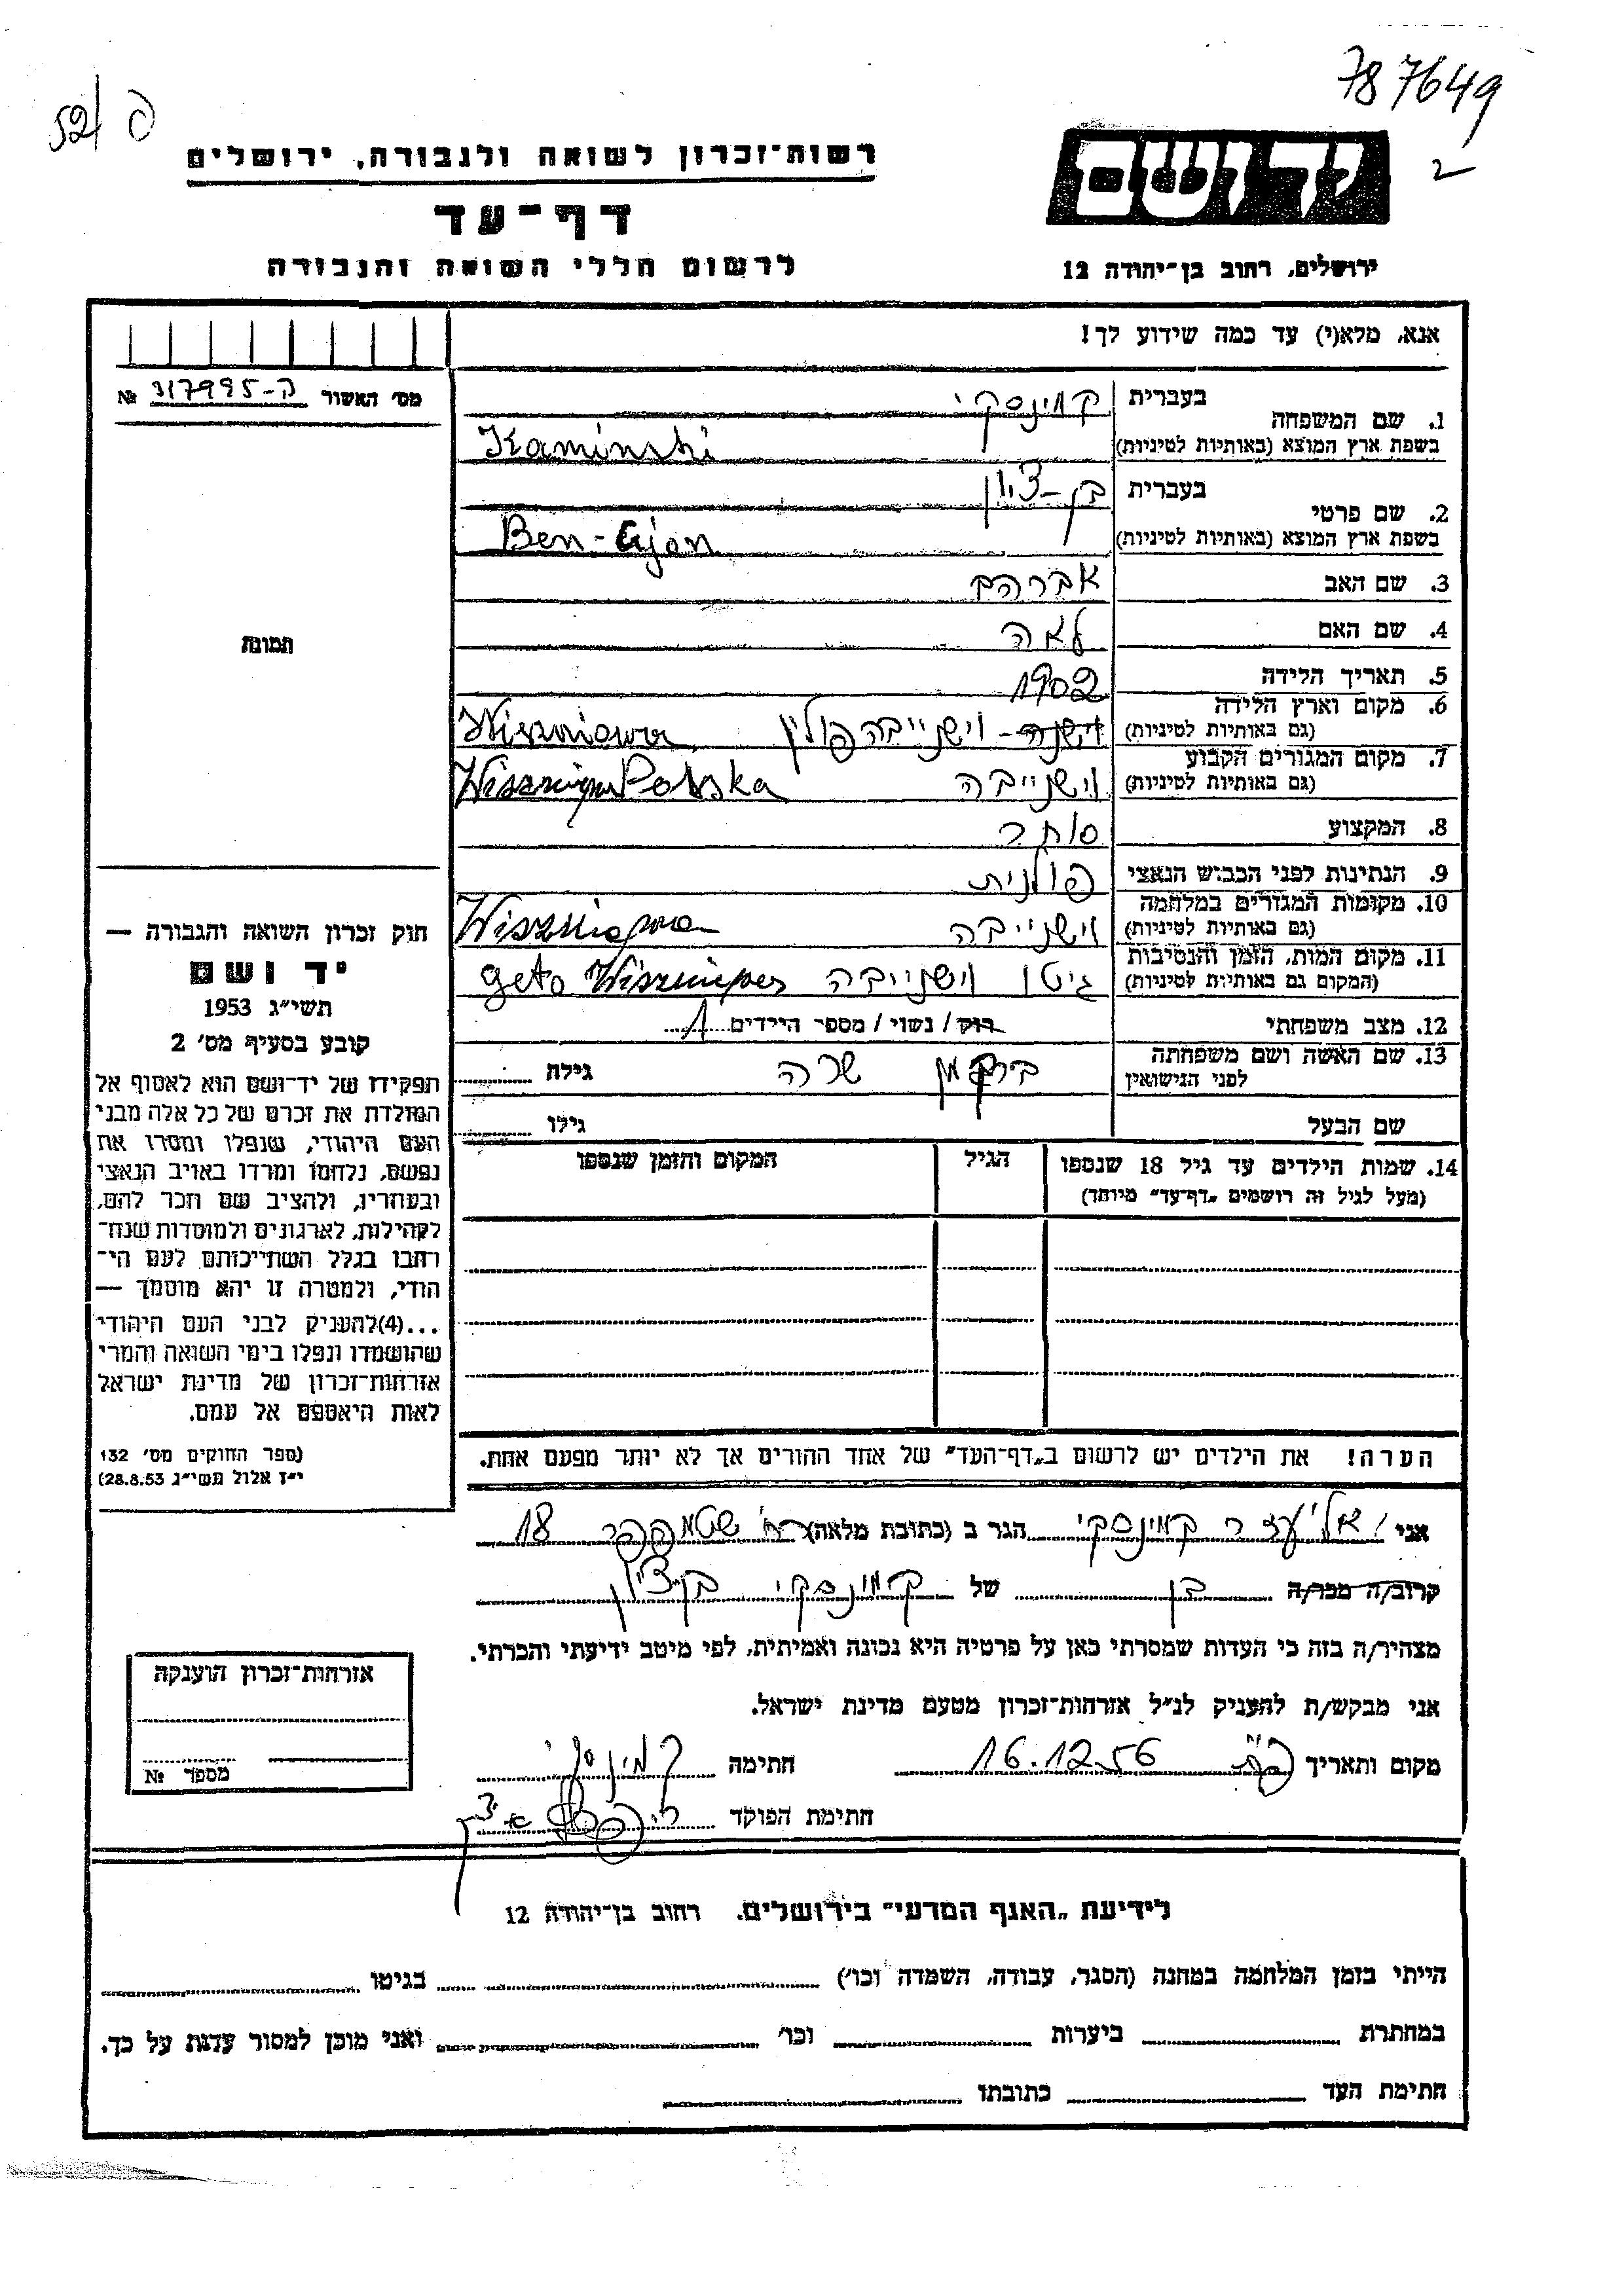 787649
2
52/ ק
יד ושם
ירושלים, רחוב בן־יהודה 12
רשות־זכרון לשואה ולגבורה, ירושלים
דף־עד
לרשום חללי השואה והגבורה
אנא, מלא(י) עד כמה שידוע לך!
מס׳ האשור ק-317995 №
1. שם המשפחה בעברית קמינסקי
בשפת ארץ המוצא (באותיות לטיניות) Kaminski
2. שם פרטי בעברית בן-ציון
בשפת ארץ המוצא (באותיות לטיניות) Ben-Cijon
3. שם האב אברהם
4. שם האם לאה
5. תאריך הלידה 1902
6. מקום וארץ הלידה (גם באותיות לטיניות) וישנה - וישנייבה פולין Wiszniowa
7. מקום המגורים הקבוע (גם באותיות לטיניות) וישנייבה Polska
8. המקצוע סוחר
9. הנתינות לפני הכבוש הנאצי פולנית
10. מקומות המגורים במלחמה (גם באותיות לטיניות) וישנייבה Wiszniowa
11. מקום המות, הזמן והנסיבות (המקום גם באותיות לטיניות) גיטו וישנייבה geto
12. מצב משפחתי רוק/ נשוי/ מספר הילדים 1
13. שם האשה ושם משפחתה לפני הנישואין ברגמן שרה גילה
שם הבעל גילו
14. שמות הילדים עד גיל 18 שנספו הגיל המקום והזמן שנספו
(מעל לגיל זה רושמים „דף־עד״ מיוחד)
הערה! את הילדים יש לרשום ב„דף־העד״ של אחד ההורים אך לא יותר מפעם אחת.
תמונה
חוק זכרון השואה והגבורה —
יד ושם
תשי״ג 1953
קובע בסעיף מס׳ 2
תפקידו של יד־ושם הוא לאסוף אל
המולדת את זכרם של כל אלה מבני
העם היהודי, שנפלו ומסרו את
נפשם, נלחמו ומרדו באויב הנאצי
ובעוזריו, ולהציב שם וזכר להם,
לקהילות, לארגונים ולמוסדות שנח־
רבו בגלל השתייכותם לעם הי־
הודי, ולמטרה זו יהא מוסמך —
...(4)להעניק לבני העם היהודי
שהושמדו ונפלו בימי השואה והמרי
אזרחות־זכרון של מדינת ישראל
לאות היאספם אל עמם.
(ספר החוקים מס׳ 132
י״ז אלול תשי״ג 28.8.53)
אני אליעזר קמינסקי הגר ב (כתובת מלאה) 18
קרוב/ה מכר/ה בן של קמינסקי בן-ציון
מצהיר/ה בזה כי העדות שמסרתי כאן על פרטיה היא נכונה ואמיתית, לפי מיטב ידיעתי והכרתי.
אני מבקש/ת להעניק לנ״ל אזרחות־זכרון מטעם מדינת ישראל.
מקום ותאריך 16.12.56 חתימה קמינסקי
חתימת הפוקד
אזרחות־זכרון הוענקה
מספר №
לידיעת „האגף המדעי״ בירושלים, רחוב בן־יהודה 12
הייתי בזמן המלחמה במחנה (הסגר, עבודה, השמדה וכו׳) בגיטו
במחתרת ביערות וכו׳ ואני מוכן למסור עדות על כך.
חתימת העד כתובתו